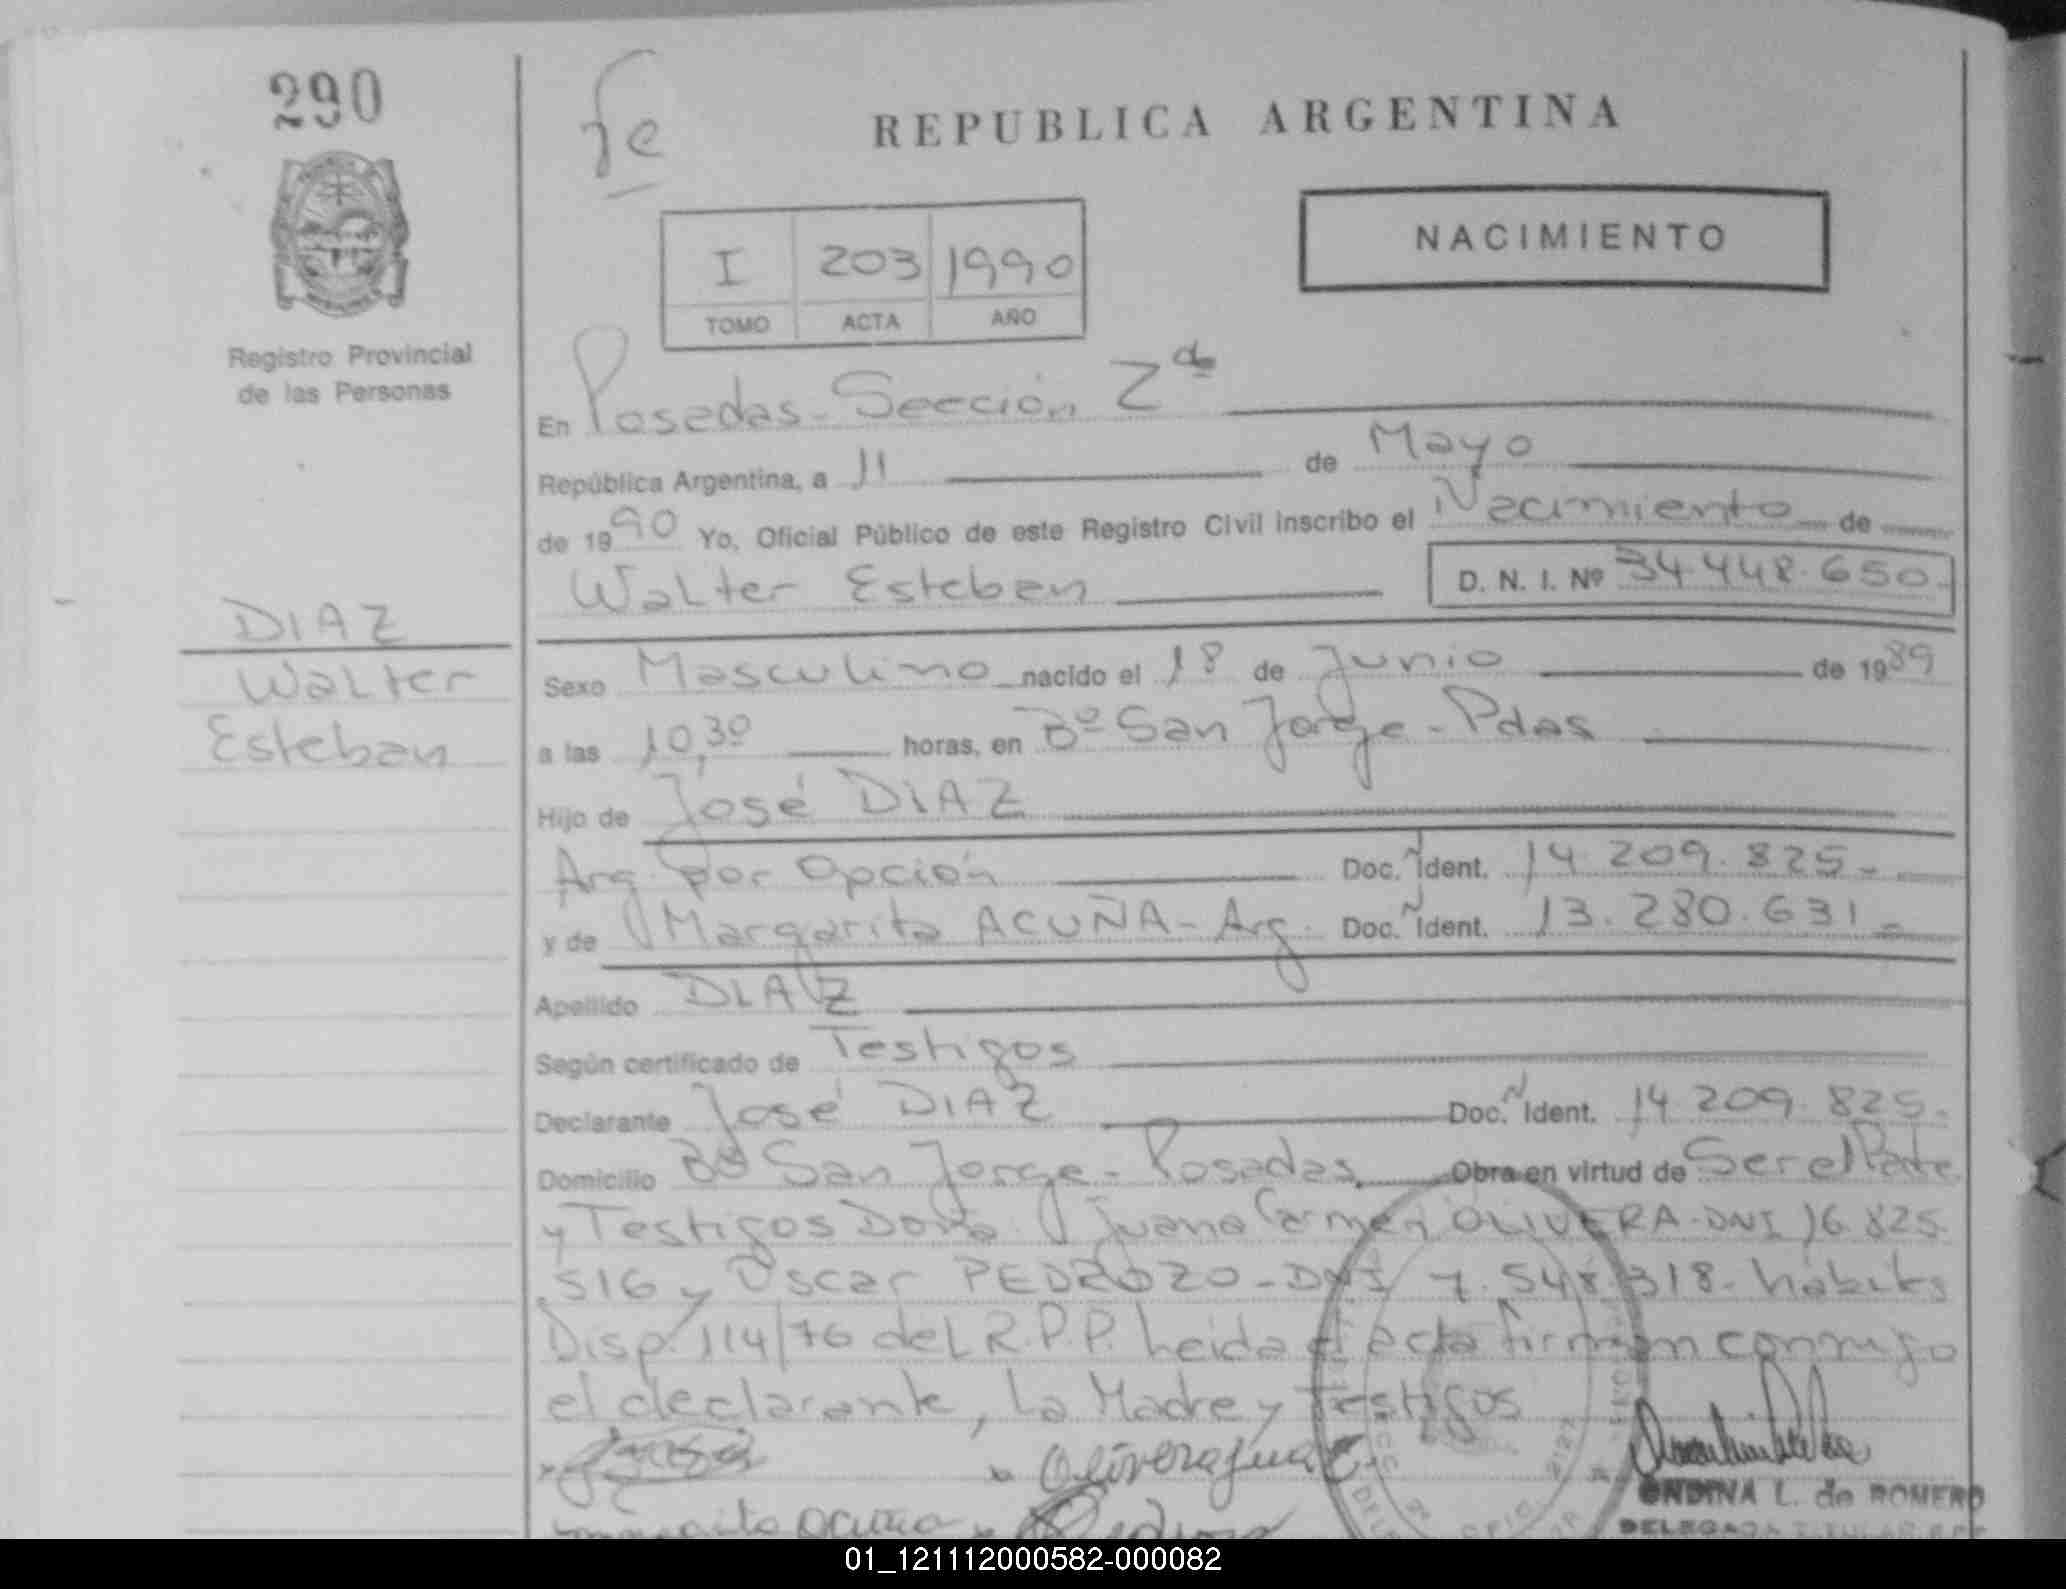 290
fe
REPUBLICA ARGENTINA
NACIMIENTO
I 203 1990
TOMO ACTA AÑO
Registro Provincial
de las Personas
En Posadas - Sección 2da
República Argentina, a 11 de Mayo
de 1990 Yo, Oficial Público de este Registro Civil inscribo el Nacimiento de
Walter Esteban D. N. I. Nº 34.448.650.
DIAZ
Walter
Esteban
Sexo Masculino nacido el 18 de Junio de 1989
a las 10,30 horas, en Bº San Jorge - Pdas
Hijo de José DIAZ
Arg. por Opción Doc. Ident. 14.209.825.-
y de Margarita ACUÑA - Arg. Doc. Ident. 13.280.631.-
Apellido DIAZ
Según certificado de Testigos
Declarante José DIAZ Doc. Ident. 14.209.825.
Domicilio Bº San Jorge - Posadas. Obra en virtud de Ser el Padre
y Testigos Doña Juana Carmen OLIVERA - DNI 16.825.
516 y Oscar PEDROZO - DNI 7.548.318 - hábiles
Disp. 114/76 del R.P.P. Leida el acta firman conmigo
el declarante, la Madre y Testigos
Olivera Juana
ONDINA L. de ROMERO
DELEGADA TITULAR
01_121112000582-000082